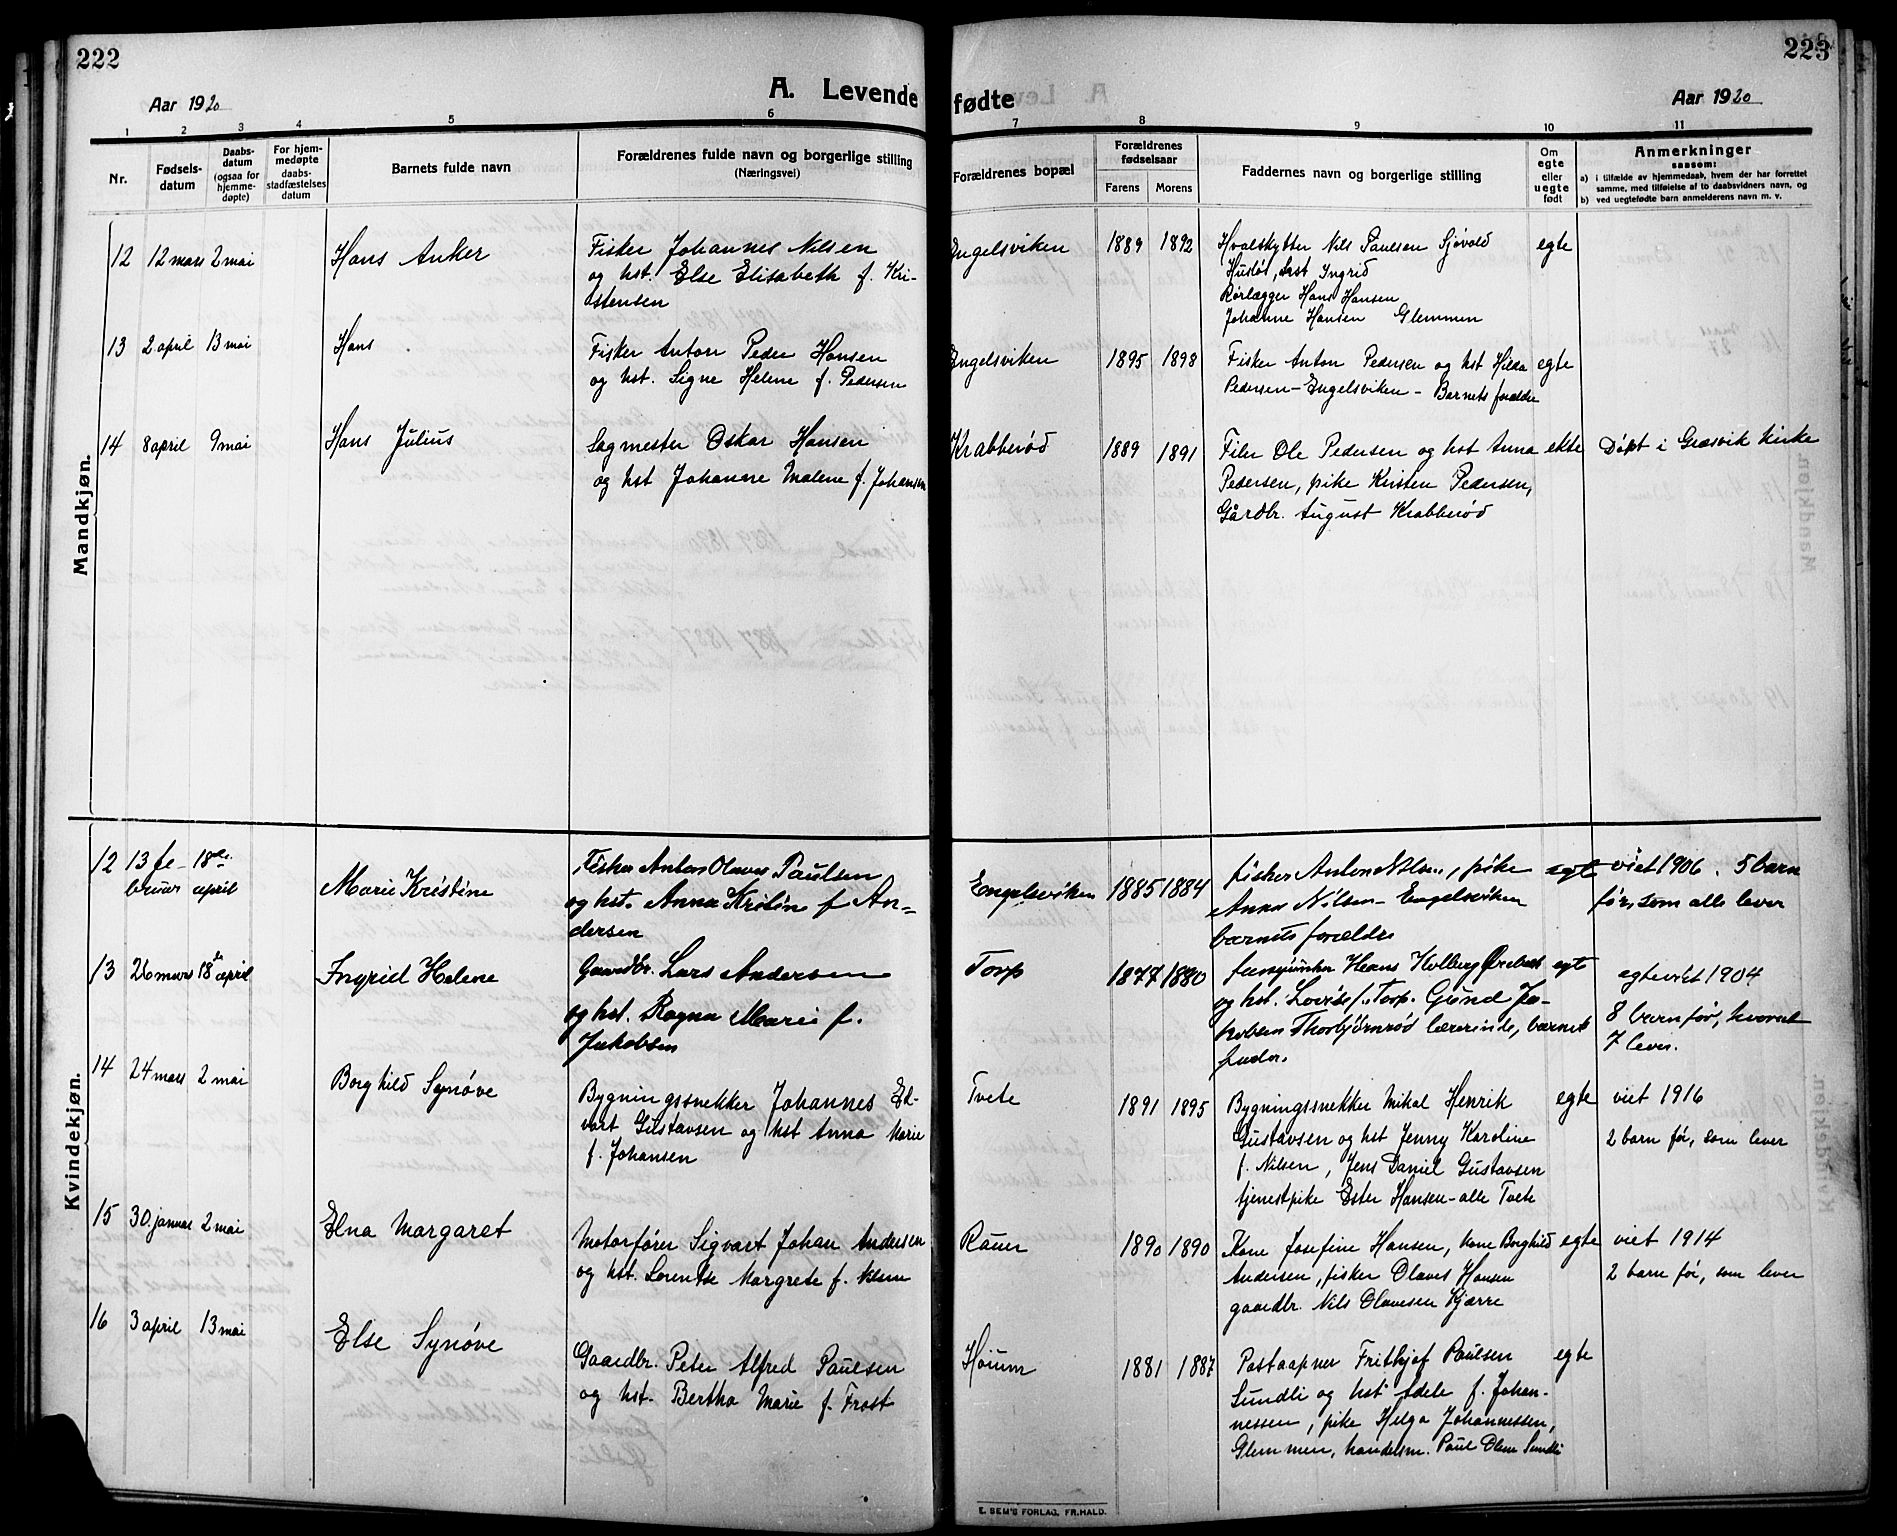 222
223
Aar 1920
A. Levende
fødte
Aar 1920
1 2 3 4 5 6 7 8 9 10 11
Nr.
Fødsels-
datum
Daabs-
datum
(ogsaa for
hjemme-
døpte)
For hjem-
medøpte
daabs-
stadfæstelses
datum
Barnets fulde navn
Forældrenes fulde navn og borgerlige stilling
(Næringsvei)
Forældrenes bopæl
Forældrenes
fødselsaar
Farens
Morens
Faddernes navn og borgerlige stilling
Om
egte
eller
uegte
født
Anmerkninger
saasom:
a) i tilfælde av hjemmedaab, hvem der har forrettet
samme, med tilføielse af to daabsvidners navn, og
b) ved uegtefødte barn anmelderens navn m. v.
Mandkjøn.
12 12 mars 2 mai
Hans Anker
Fisker Johannes Nilsen
og hst. Else Elisabeth f. Kri-
stensen
Engelsviken
1889 1892
Hvalskytter Nils Paulsen Sjövold
Ingrid
Rörlægger Hans Hansen
Johanne Hansen Glemmen
egte
13 2 april 13 mai
Hans
Fisker Anton Peder Hansen
og hst. Signe Helene f. Pedersen
Engelsviken
1895 1898
Fisker Anton Pedersen og hst Hilda
Pedersen-Engelsviken - Barnets forældre
egte
14 8 april 9 mai
Hans Julius
Sagmester Oskar Hansen
og hst Johanne Malene f. Johansen
Krabberød
1889 1891
Filer Ole Pedersen og hst Anna
Pedersen, pike Kristen Pedersen,
Gårdbr. August Krabberød
ekte
Döpt i Græsvik kirke
Kvindekjøn.
12 13 fe- 18de
bruar april
Marie Kristine
Fisker Anton Olaves Paulsen
og hst. Anna Kristin f An-
dersen
Engelsviken
1885 1884
fisker Anton Nilsen, pike
Anna Nilsen - Engelsviken
barnets forældre
egt
viet 1906. 5 barn
før, som alle lever
13 26 mars 18de april
Ingrid Helene
Gaardbr. Lars Andersen
og hst. Ragna Marie f.
Jakobsen
Torp
1877 1880
Hans Holberg
og hst. Lovise f. Torp. Gund Ja-
kobsen Thorbjörnrød lærerinde, barnets
fader.
egt
egteviet 1904
8 barn før, hvorav
7 lever.
14 24 mars 2 mai
Borghild Synöve
Bygningssnekker Johannes Ed-
vart Gustavsen og hst Anna Marie
f. Johansen
Tvete
1891 1895
Bygningssnekker Mikal Henrik
Gustavsen og hst Jenny Karoline
f. Nilsen, Jens Daniel Gustavsen
tjenestpike Ester Hansen - alle Tvete
egte
viet 1916
2 barn før, som lever
15 30. januar 2 mai
Elna Margaret
Motorfører Sigvart Johan Andersen
og hst. Lorentse Margrete f. Nilsen
Rauer
1890 1890
Kone Josefine Hansen, kone Borghild
Andersen, fisker Olaves Hansen
gaardbr. Nils Olavesen Kjærre
egte
viet 1914
2 barn før, som lever
16 3 april 13 mai
Else Synöve
Gaardbr. Peter Alfred Paulsen
og hst. Bertha Marie f. Frost
Høium
1881 1887
Postaapner Frithjof Paulsen
Sundli og hst Adele f. Johan-
nessen, pike Helga Johannessen,
Glemmen, handelsm. Paul Olsen Sundli
egte
E. SEM'S FORLAG, FR.HALD.